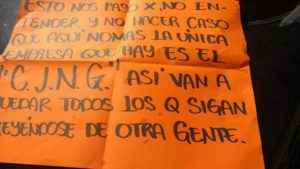 ESTO NOS PASO X NO EN-
TENDER Y NO HACER CASO
QUE AQUÍ NOMAS LA ÚNICA
EMPRESA QUE HAY ES EL
"C.J.N.G." ASÍ VAN A
QUEDAR TODOS LOS Q SIGAN
CREYENDOSE DE OTRA GENTE.